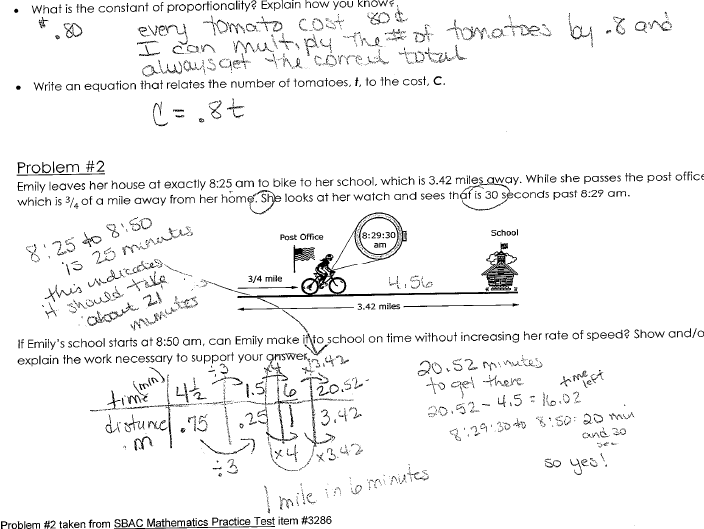 • What is the constant of proportionality? Explain how you know?
$.80 every tomato cost 80¢
I can multiply the # of tomatoes by .8 and
always get the correct total
• Write an equation that relates the number of tomatoes, t, to the cost, C.
C = .8t
Problem #2
Emily leaves her house at exactly 8:25 am to bike to her school, which is 3.42 miles away. While she passes the post office
which is 3/4 of a mile away from her home. She looks at her watch and sees that is 30 seconds past 8:29 am.
8:25 to 8:50
is 25 minutes
this indicates
it should take
about 21
minutes
Post Office
8:29:30
am
School
3/4 mile
4.56
3.42 miles
If Emily's school starts at 8:50 am, can Emily make it to school on time without increasing her rate of speed? Show and/o
explain the work necessary to support your answer.
÷3 x4 x3.42
time (min) 4½ 1.5 6 20.52
distance m .75 .25 1 3.42
÷3 x4 x3.42
1 mile in 6 minutes
20.52 minutes
to get there
time left
20.52 - 4.5 = 16.02
8:29:30 to 8:50 = 20 min
and 30
sec
so yes!
Problem #2 taken from SBAC Mathematics Practice Test item #3286